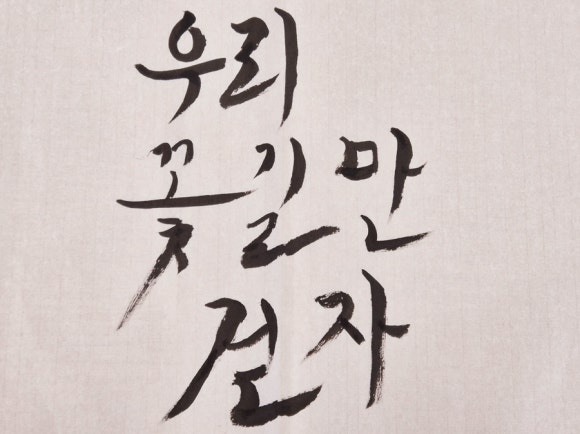 우리
꽃길만
걷자